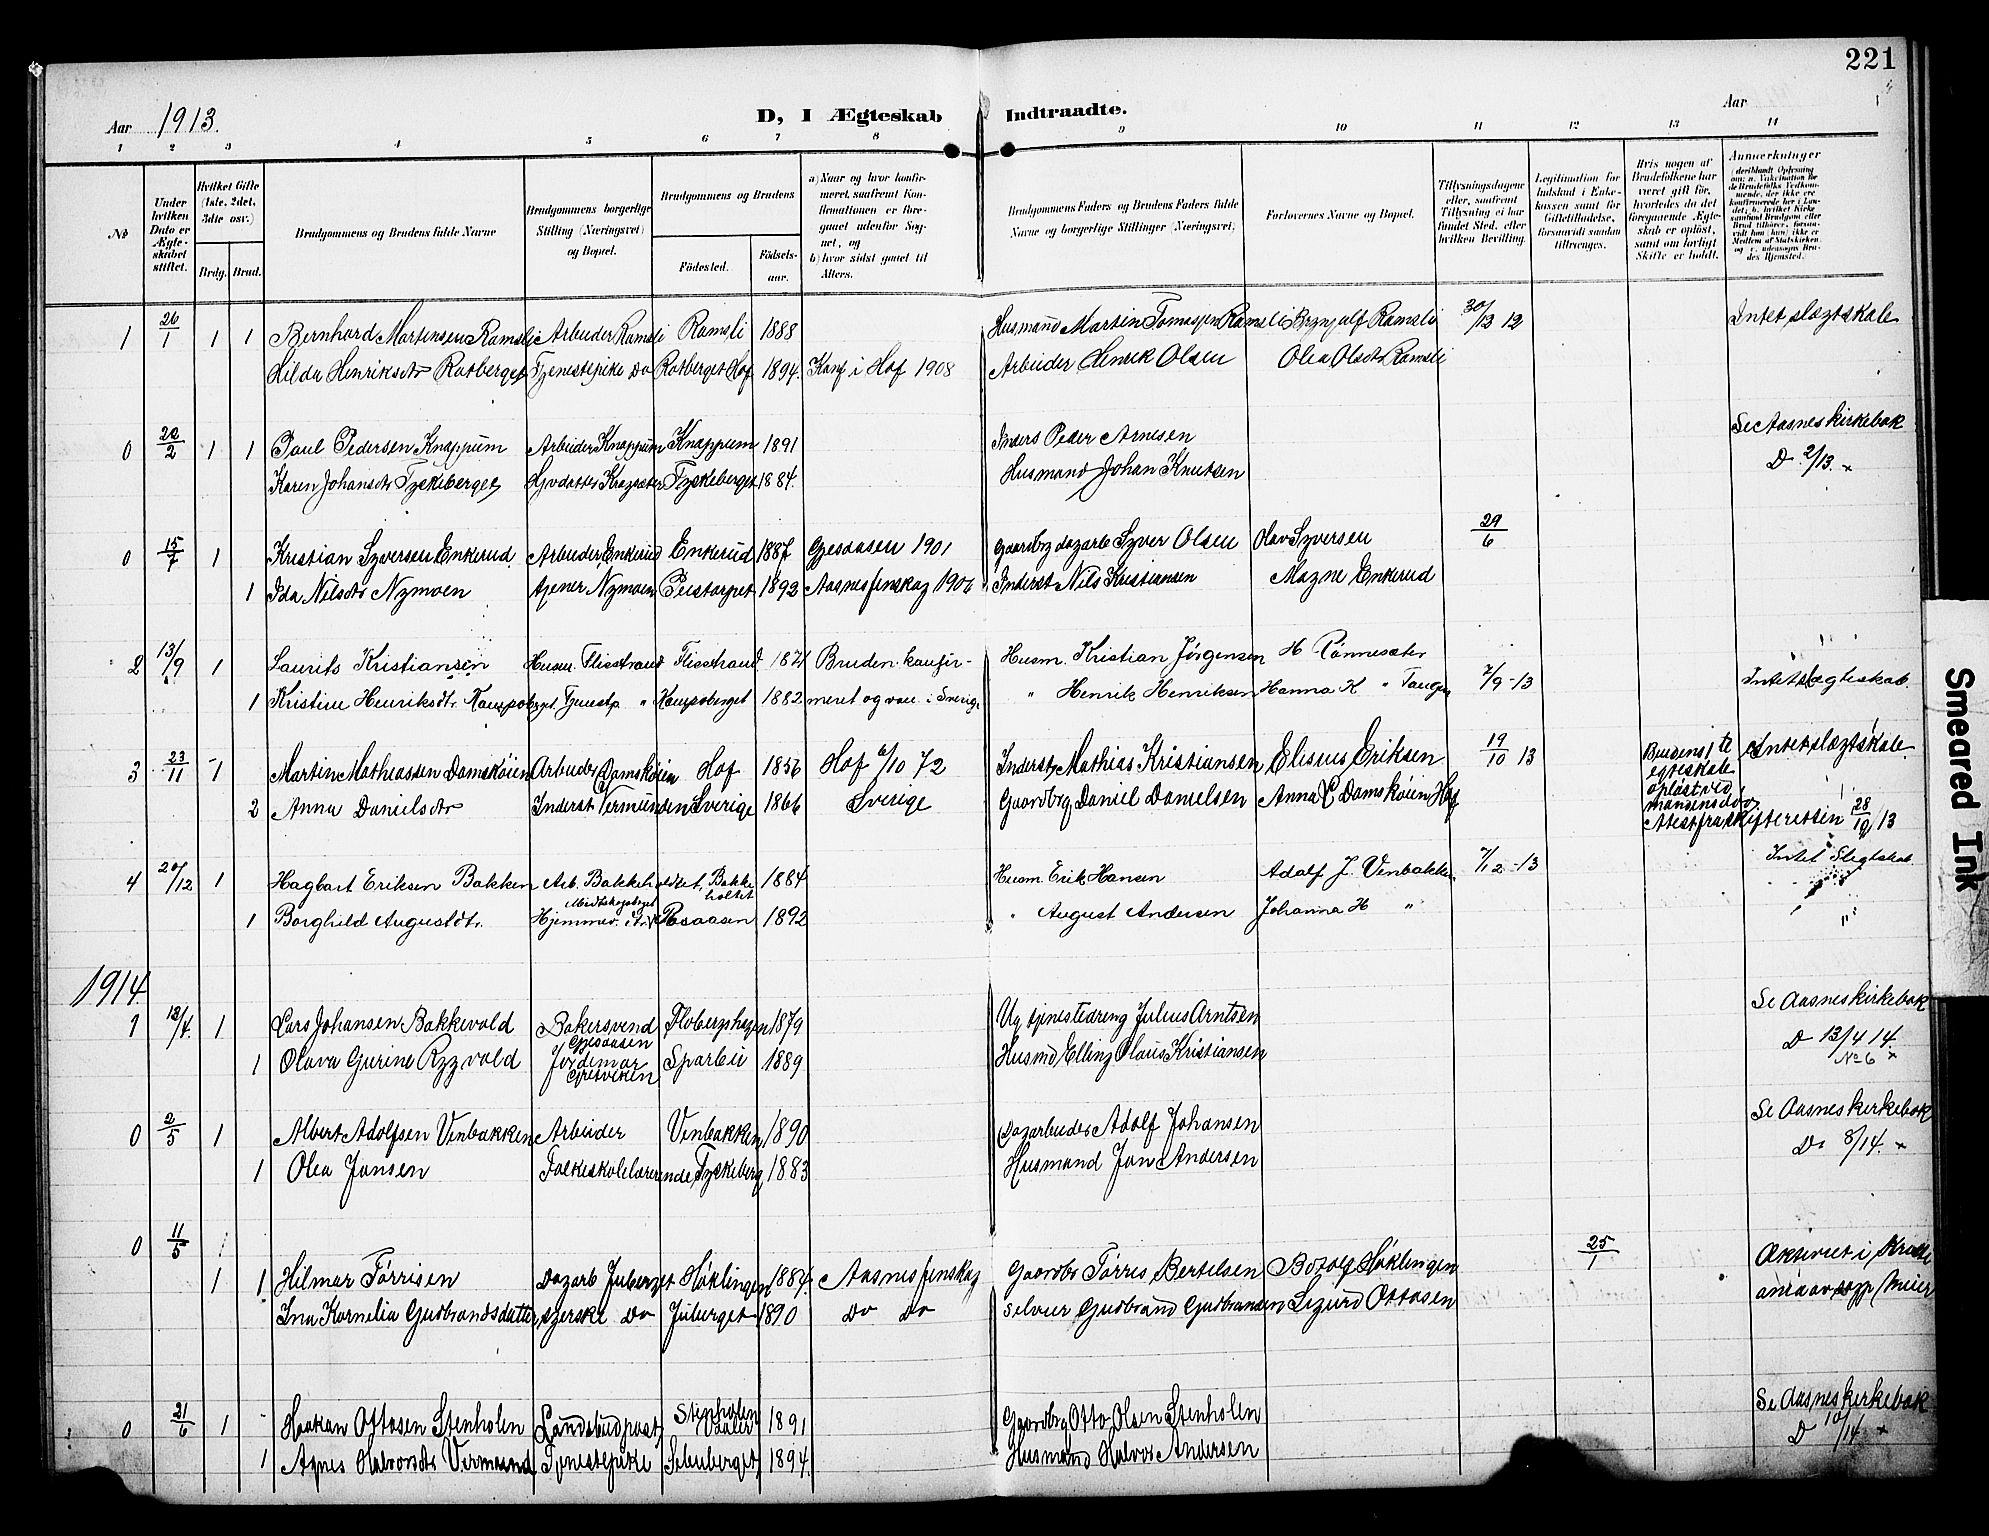 221
Aar 1913.
D, I Ægteskab Indtraadte.
Aar 1
1 2 3 4 5 6 7 8 9 10 11 12 13 14
No
Under hvilken Dato er Ægteskabet stiftet.
Hvilket Gifte (1ste, 2det, 3die osv.)
Brdg. Brud.
Brudgommens og Brudens fulde Navne
Brudgommens borgerlige Stilling (Næringsvei) og Bopæl.
Brudgommens og Brudens
Födested. Födselsaar.
a) Naar og hvor konfirmeret, saafremt Konfirmationen er foregaaet udenfor Sognet, og
b) hvor sidst gaaet til Alters.
Brudgommens Faders og Brudens Faders fulde Navne og borgerlige Stillinger (Næringsvei)
Forlovernes Navne og Bopæl.
Tillysningsdagene eller, saafremt Tillysning ei har fundet Sted, efter hvilken Bevilling.
Legitimation for Indskud i Enkekassen samt for Giftetilladelse, forsaavidt saadan tiltrænges.
Hvis nogen af Brudefolkene har været gift för, hvorledes da det foregaaende Ægteskab er oplöst, samt om lovligt Skifte er holdt.
Anmerkninger
1 26/1 1 1 Bernhard Martinsen Ramsli Arbeider Ramsli Ramsli 1888 Husmand Martin Tomassen Ramsli Brynjulf Ramsli 30/12 12 Intet slægtskab
Hilda Henriksdtr Rotberget Tjenestepike Do Rotberget Hof 1894. Konf i Hof 1908 Arbeider Henrik Olsen Olea Olsdtr Ramsli
0 22/2 1 1 Paul Pedersen Knappum Arbeider Knappum Knappum 1891 Inders Peder Arnesen Se Aasnes kirkebok
Karen Johansdtr Tyskeberget Tyskeberget 1884. Husmand Johan Knutsen D 2/13. x
0 15/7 1 Kristian Syversen Enkerud Arbeider Enkerud Enkerud 1887 Gjesaasen 1901 Gaardbrg dagarb Syver Olsen Olav Syversen 29/6
1 Ida Nilsdtr Nymoen Nymoen 1892 Aasnes finskog Inderst Nils Kristiansen Magne Enkerud
2 13/9 1 Laurits Kristiansen Husm. Flisstrand Flisstrand Bruden konfir- Husm. Kristian Jørgensen H Tønnesæter
1 Kristine Henriksdtr. Kampesberget Tjenestp. " Kampesberget 1882 meret og vac. i Sverige " Henrik Henriksen Hanna K " Tangen 7/9-13 Intet slægteskab.
3 23/11 1 Martin Mathiassen Damskøien Arbeider Damskøien Hof 1856 Hof 6/10 72 Inderst Mathias Kristiansen Elisius Eriksen 19/10 13 Brudens 1te egteskab opløst ved mandens død. Intet slægtskab.
2 Anna Danielsdtr Inderst Vermunden Sverige 1866 Sverige Gaardbrg Daniel Danielsen Anna E Damskøien Hof Attest fra skifteretten 28/10/13
4 20/12 1 Hagbart Eriksen Bakken Arb. Bakkeholtet, Bakkeholtet 1884 Husm. Erik Hansen Adolf J. Venbakken 7/12-13 Intet Slegtskab
1 Borghild Augustdtr. Hjemmev. dtr. Rosaasen 1892 " August Andersen Johanna H " "
1914.
1 13/4. 1 Lars Johansen Bakkevold Bakersvend Gjesaasen Floberghagen 1879 Ug tjenestedreng Julius Arntsen Se Aasnes kirkebok
1 Olava Gurine Rygvold Jordemor Gjetveken Sparbu 1889 Husmd Elling Olaus Kristiansen D 13/4 14. No 6 x
0 2/5 1 Albert Adolfsen Venbakken Arbeider Venbakken 1890 Dagarbeider Adolf Johansen Se Aasnes kirkebok
1 Olea Jonsen Folkeskolelærerinde Tyskeberg 1883 Husmand Jon Andersen Do 8/14. x
0 11/5
1 1 Hilmar Tørrisen Dagarb Juberget Høklingen 1884. Aasnes finskog Gaardbr Tørris Bertilsen Botolf Høklingen 25/1
Ina Kornelia Gudbrandsdatter Do Juberget 1890 Do Do Selveier Gudbrand Gudbrandsen Sigurd Ottosen
0 21/6 1 Haakan Ottosen Stenholen Landsbudpost Stenholen Vaaler 1891 Gaardbrg Otto Olsen Stenholen Se Aasnes kirkebok
1 Agnes Halvorsdtr Vermund Tjenestepike 1894. Husmand Halvor Andersen D 10/14 x
Smeared Ink